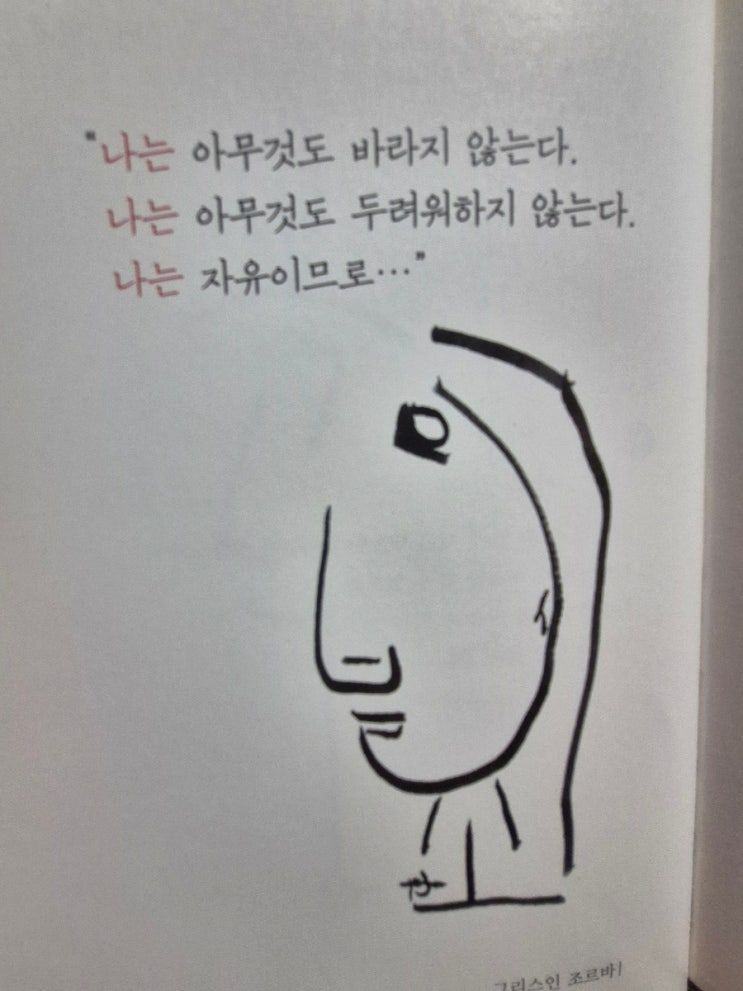 "나는 아무것도 바라지 않는다.
나는 아무것도 두려워하지 않는다.
나는 자유이므로…"
그리스인 조르바